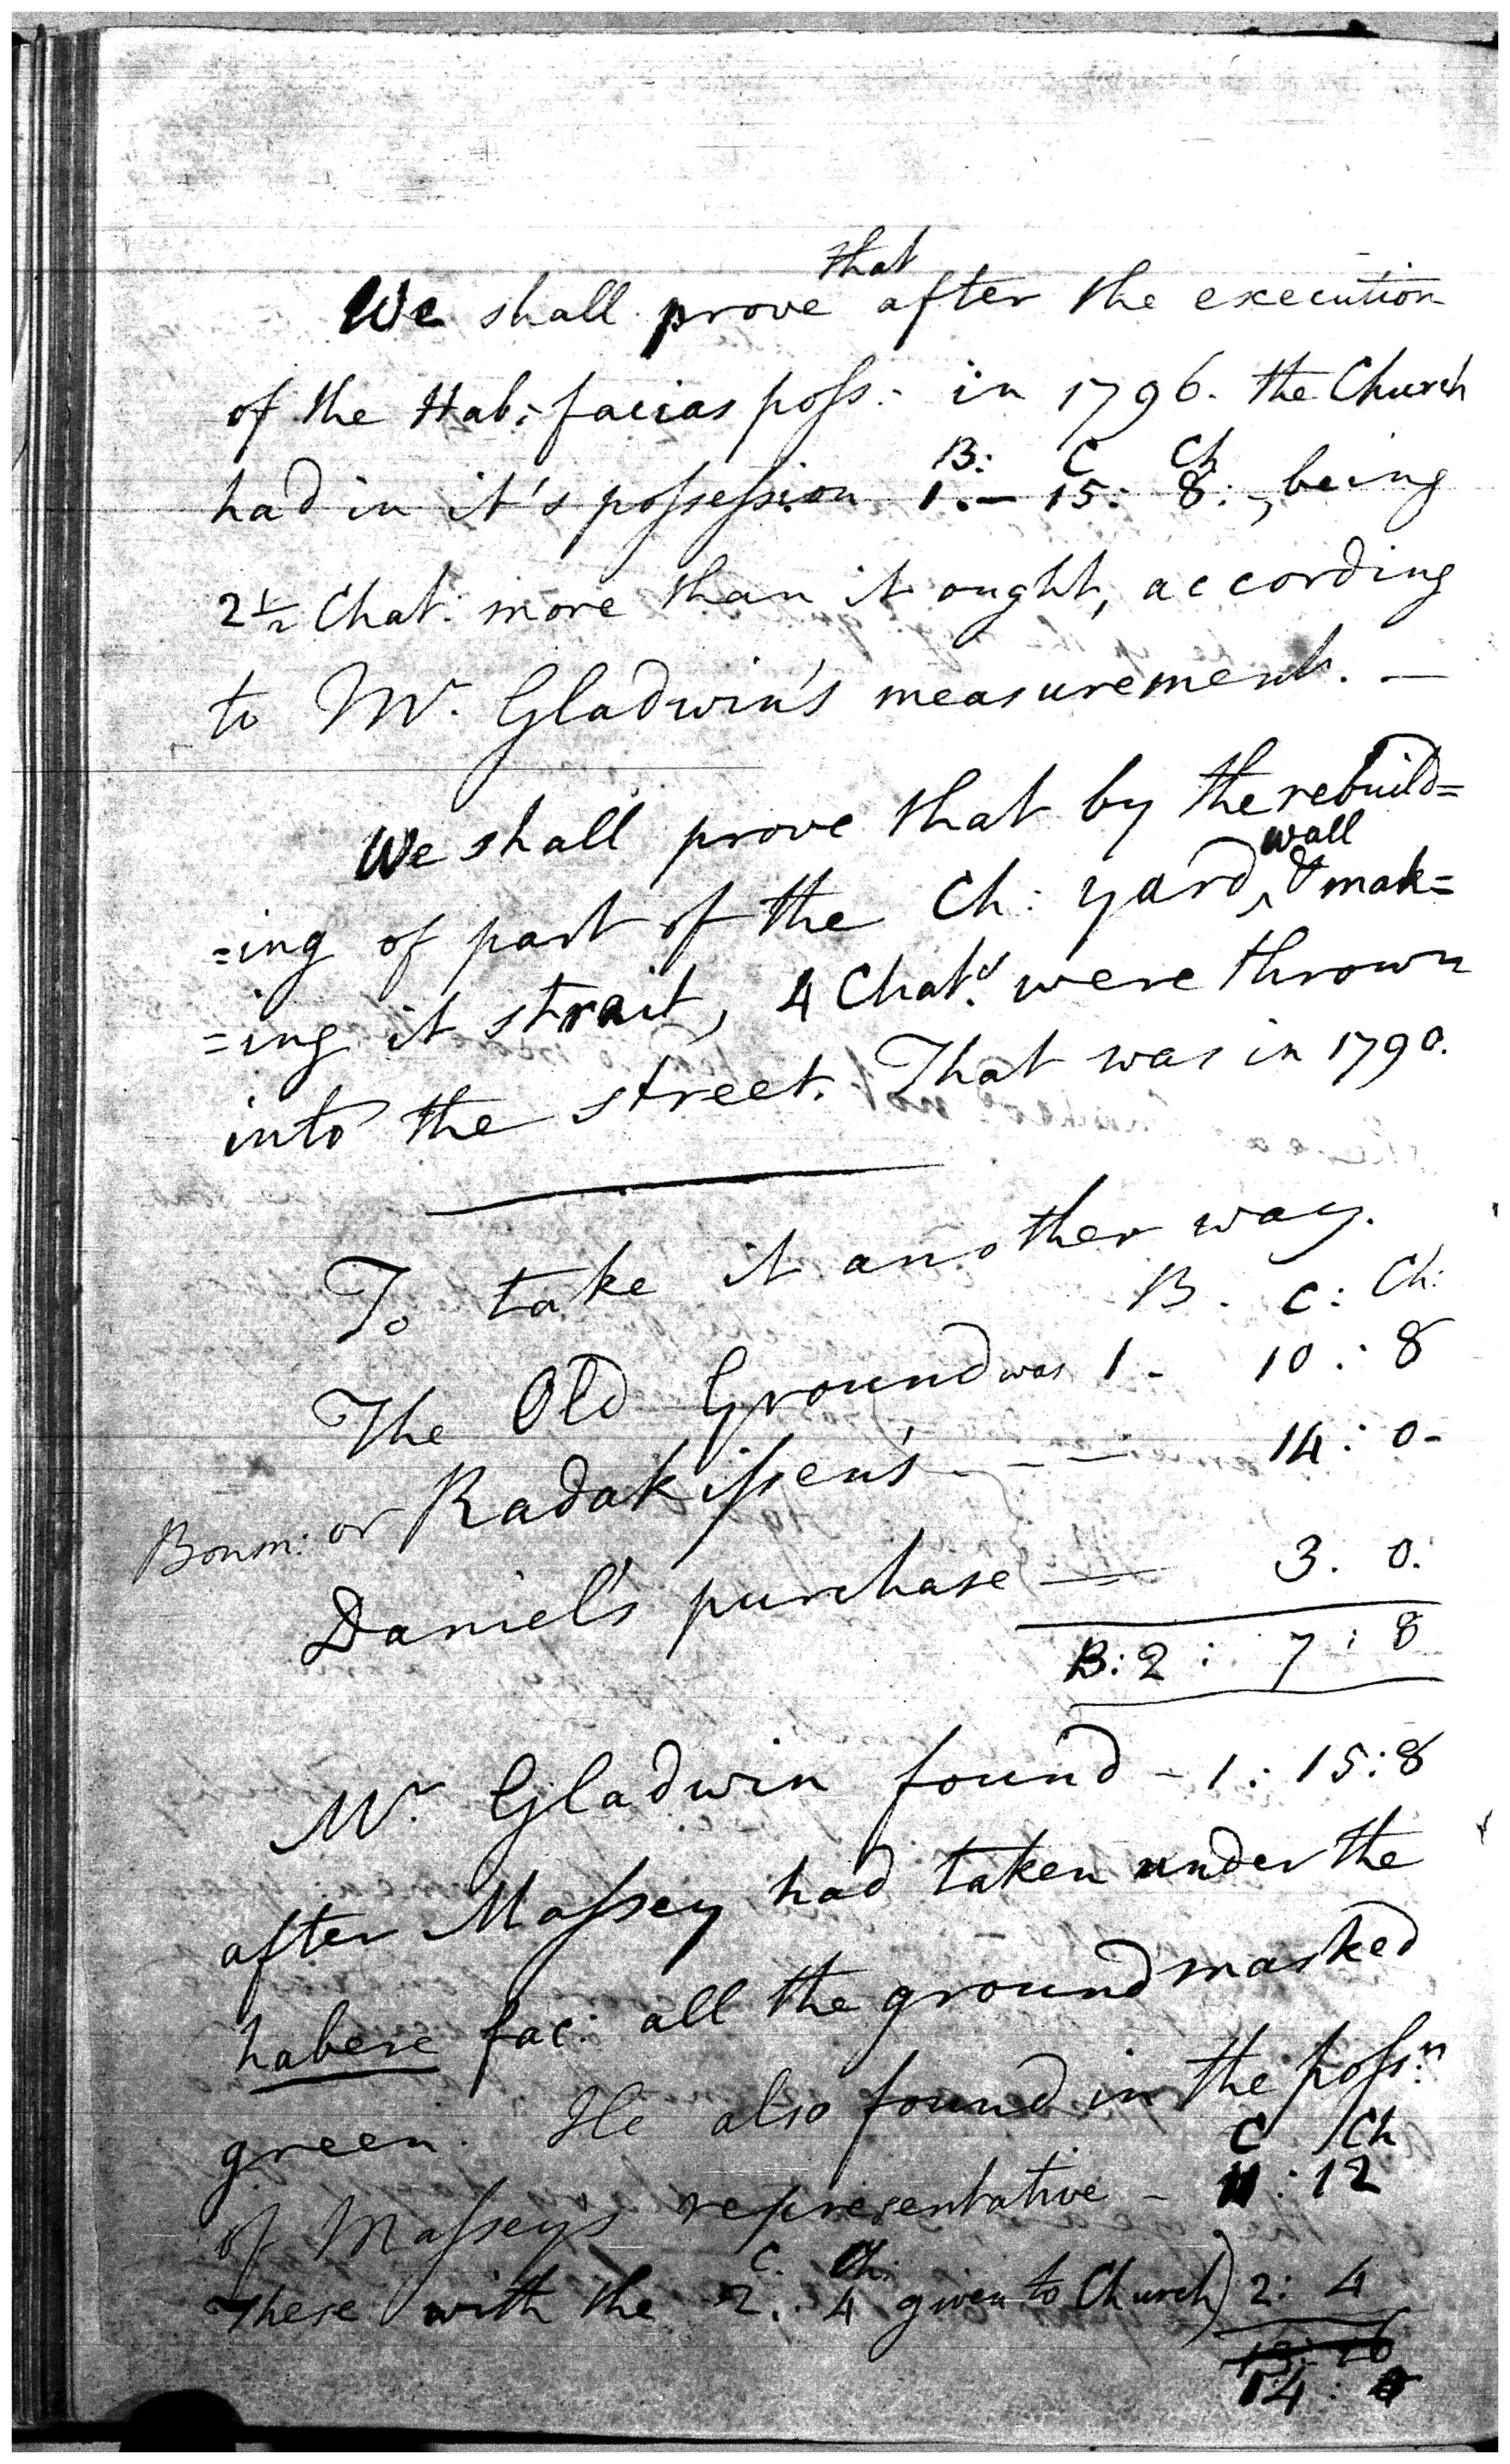 that
We shall prove after the execution
of the Hab: facias poss: in 1796. the Church
B: C Ch
had in it's possession 1.- 15: 8:, being
2½ Chat: more than it ought, according
to Mr. Gladwin's measurement. —
We shall prove that by the rebuild=
wall
=ing of part of the Ch: yard ‸ & mak=
=ing it strait, 4 Chat.s were thrown
into the street. That was in 1790.
To take it another way.
B. C: Ch:
The Old Ground was 1 - 10 : 8
Bonm: or Radakissen's - - — 14 : 0-
Daniel's purchase — 3. 0.
B: 2 : 7 : 8
Mr. Gladwin found - 1 : 15 : 8
after Massey had taken under the
habere fac: all the ground masked
green. He also found in the poss:n
C Ch
of Massey's representative - 11 : 12
C. Ch:
These with the 2.. 4 given to Church) 2: 4
13: 16
14 : 0